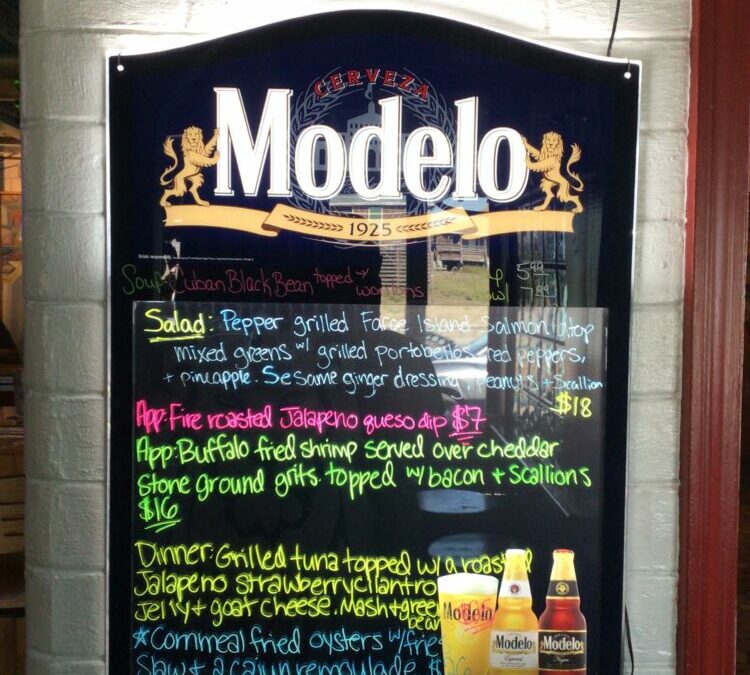 CERVEZA
Modelo
1925
Drink responsibly.
Soup: Cuban Black Bean topped w/
5.99
7.99
Salad: Pepper grilled Faroe Island Salmon atop
mixed greens w/ grilled portobellos, red peppers,
+ pineapple. Sesame ginger dressing, peanuts + Scallion
$18
App: Fire roasted Jalapeno queso dip $7
App: Buffalo fried shrimp served over cheddar
stone ground grits. topped w/ bacon + Scallions
$16
Dinner: Grilled tuna topped w/ a roasted
Jalapeno strawberry cilantro
Jelly + goat cheese. Mash + green
bean
* Cornmeal fried oysters w/ fries
Slaw + a cajun remoulade
Modelo
Modelo
Especial
Modelo
Negra